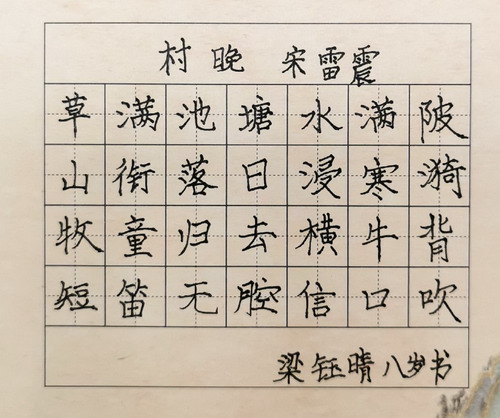 村晚 宋雷震
草满池塘水满陂
山衔落日浸寒漪
牧童归去横牛背
短笛无腔信口吹
梁钰晴八岁书